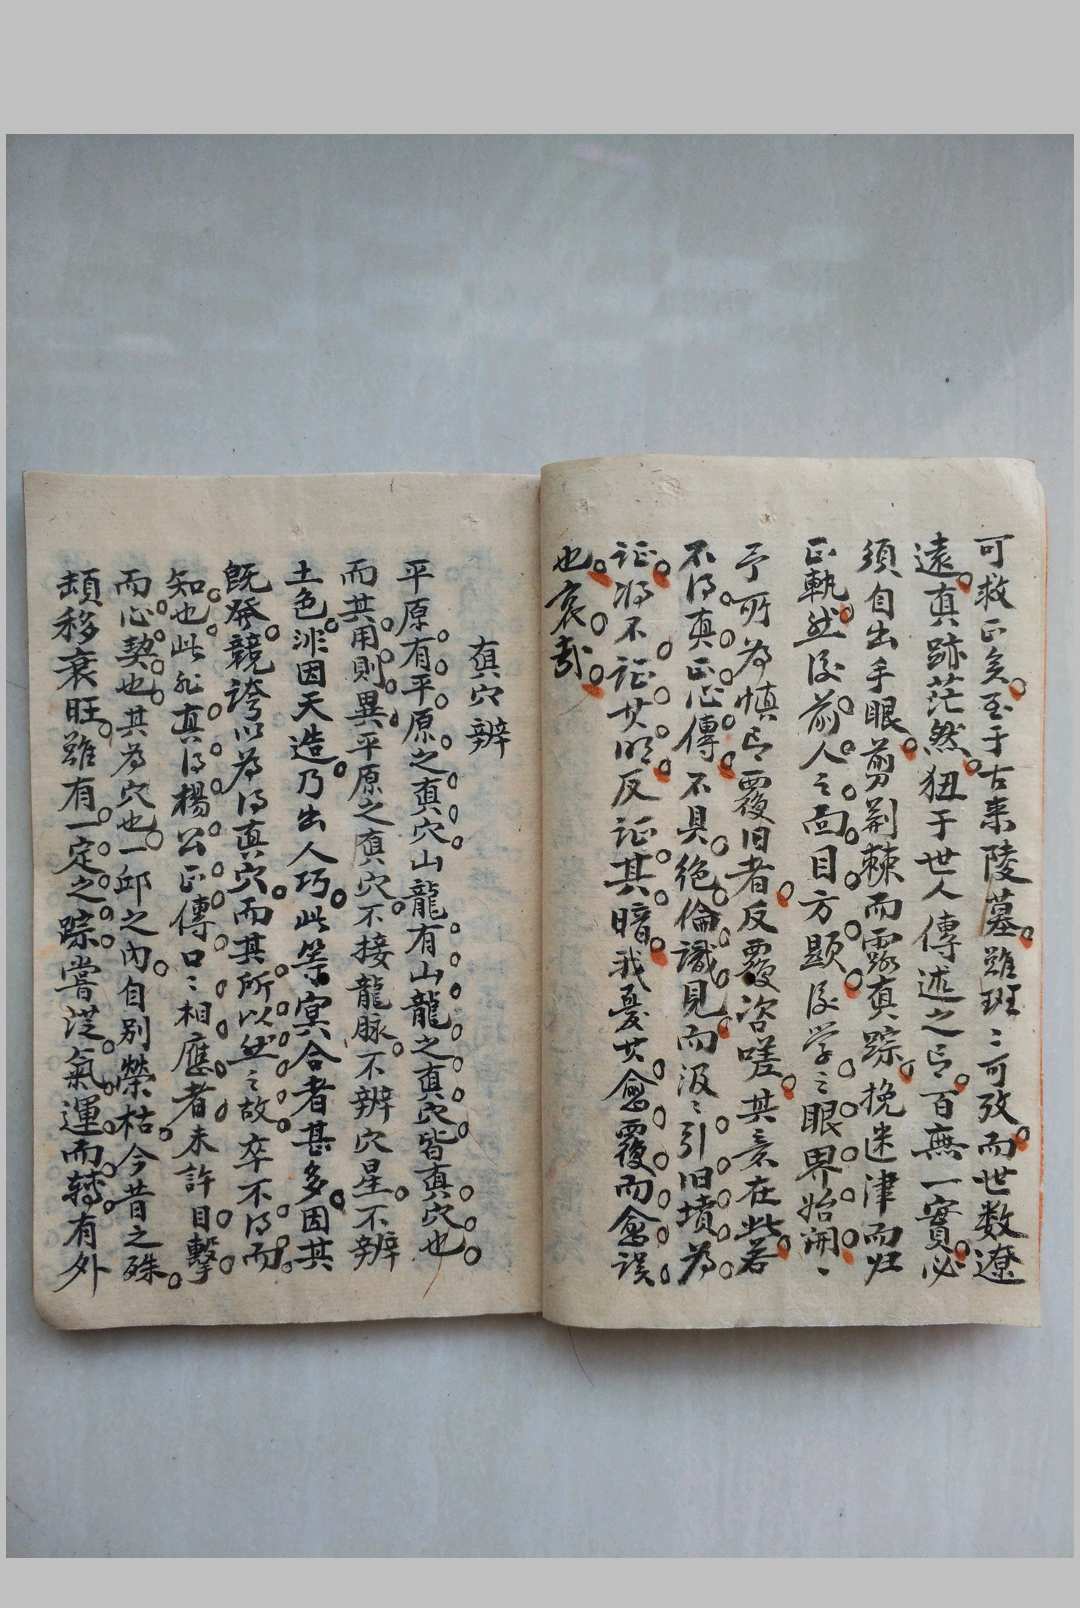 可救正矣至于古来陵墓雖班々可攷而世数遼
遠真跡茫然狃于世人傳述之言百無一實必
須自出手眼剪荆棘而露真踪挽迷津而归
正軌然後前人之面目方顯後学之眼界始開、
予所為慎言覆旧者反覆咨嗟其意在此若
不得真正心傳不具絶倫識見而汲々引旧墳為
証将不証其明反証其暗我憂其愈覆而愈误
也哀哉
真穴辨
平原有平原之真穴山龍有山龍之真穴皆真穴也
而其用則異平原之真穴不接龍脉不辨穴星不辨
土色渾因天造乃出人巧此等冥合者甚多因其
既發競誇以為得真穴而其所以然之故卒不得而
知也此非真得楊公正傳口々相應者未許目擊
而心契也其為穴也一邱之内自別榮枯今昔之殊
頓移衰旺雖有一定之踪嘗從氣運而轉有外